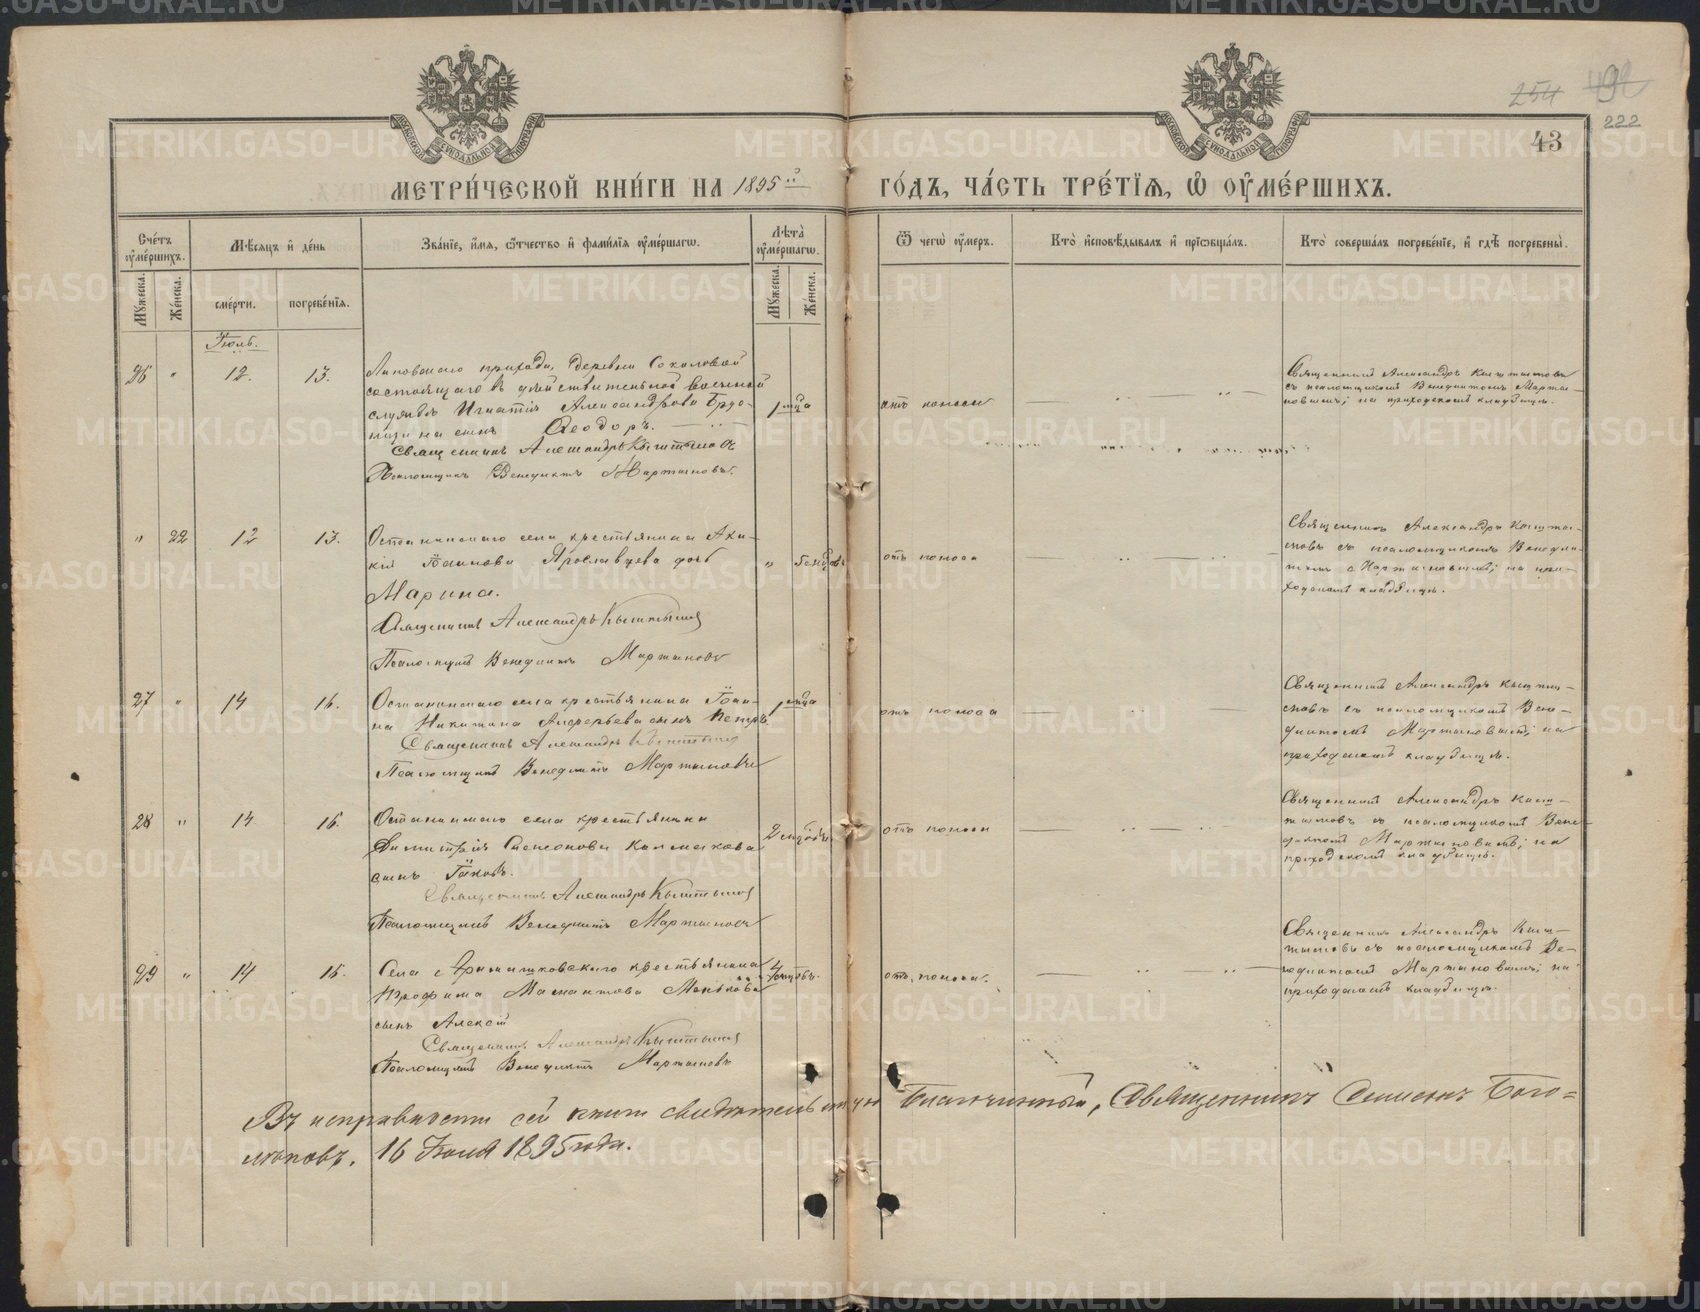 254
222
43
МЕТРИ́ЧЕСКОЙ КНИ́ГИ НА 1895 й ГО́ДЪ, ЧА́СТЬ ТРЕ́ТІѦ, Ѽ ОУ҆МЕ́РШИХЪ.
Сче́тъ оу҆ме́ршихъ.
Мꙋ́жеска.
Же́нска.
Мѣ́сяцъ и҆ де́нь
сме́рти.
погребе́нїѧ.
Зва́нїе, и҆́мѧ, ѻ҆́тчество и҆ фами́лїѧ оу҆ме́ршагѡ.
Лѣ́та оу҆ме́ршагѡ.
Мꙋ́жеска.
Же́нска.
Ѿ чегѡ̀ оу҆́меръ.
Кто̀ и҆сповѣ́дывалъ и҆ прїѻбща́лъ.
Кто̀ соверша́лъ погребе́нїе, и҆ гдѣ̀ погребены̀.
Іюль.
26 " 12. 13.
Липовскаго прихода, деревни Соколовой
состоящаго въ дѣйствительной военной
службѣ Игнатія Александрова
сынъ Ѳеодоръ.
Священникъ Александръ Кыштымовъ
Псаломщикъ Венедиктъ Мартыновъ.
1 мца
отъ поноса
Священникъ Александръ Кыштымовъ
съ псаломщикомъ Венедиктомъ Марты-
новымъ; на приходскомъ кладбищѣ.
" 22 12 13.
Останинскаго села крестьянина Аки-
Іоаннова Ярославцева дочь
Марина.
Священникъ Александръ Кыштымовъ
Псаломщикъ Венедиктъ Мартыновъ
"
отъ поноса
Священникъ Александръ Кышты-
мовъ съ псаломщикомъ Венедик-
томъ Мартыновымъ; на при-
ходскомъ кладбищѣ.
27 " 14 16.
Останинскаго села крестьянина Іоан-
на Никитина Алферьева сынъ Петръ
Священникъ Александръ Кыштымовъ
Псаломщикъ Венедиктъ Мартыновъ
1 мца
отъ поноса
Священникъ Александръ Кышты-
мовъ съ псаломщикомъ Вене-
диктомъ Мартыновымъ; на
приходскомъ кладбищѣ.
28 " 14 16.
Останинскаго села крестьянина
Димитрія Самсонова Калмакова
сынъ Іаковъ.
Священникъ Александръ Кыштымовъ
Псаломщикъ Венедиктъ Мартыновъ
отъ поноса
Священникъ Александръ Кыш-
тымовъ съ псаломщикомъ Вене-
диктомъ Мартыновымъ; на
приходскомъ кладбищѣ.
29 " 14 16.
Села крестьянина
Трофима
сынъ Алексѣй
Священникъ Александръ Кыштымовъ
Псаломщикъ Венедиктъ Мартыновъ
отъ поноса.
Священникъ Александръ Кыш-
тымовъ съ псаломщикомъ Ве-
недиктомъ Мартыновымъ; на
приходскомъ кладбищѣ.
Въ исправности сей книги свидѣтельствую Благочинный, Священникъ Симеонъ Бого=
16 Іюля 1895 года.
METRIKI.GASO-URAL.RU